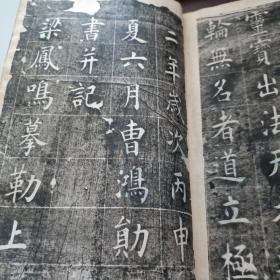 靈寶出法
輪無名者道立極
二年歲次丙申
夏六月曹鴻勛
書并記
梁鳳鳴摹勒上